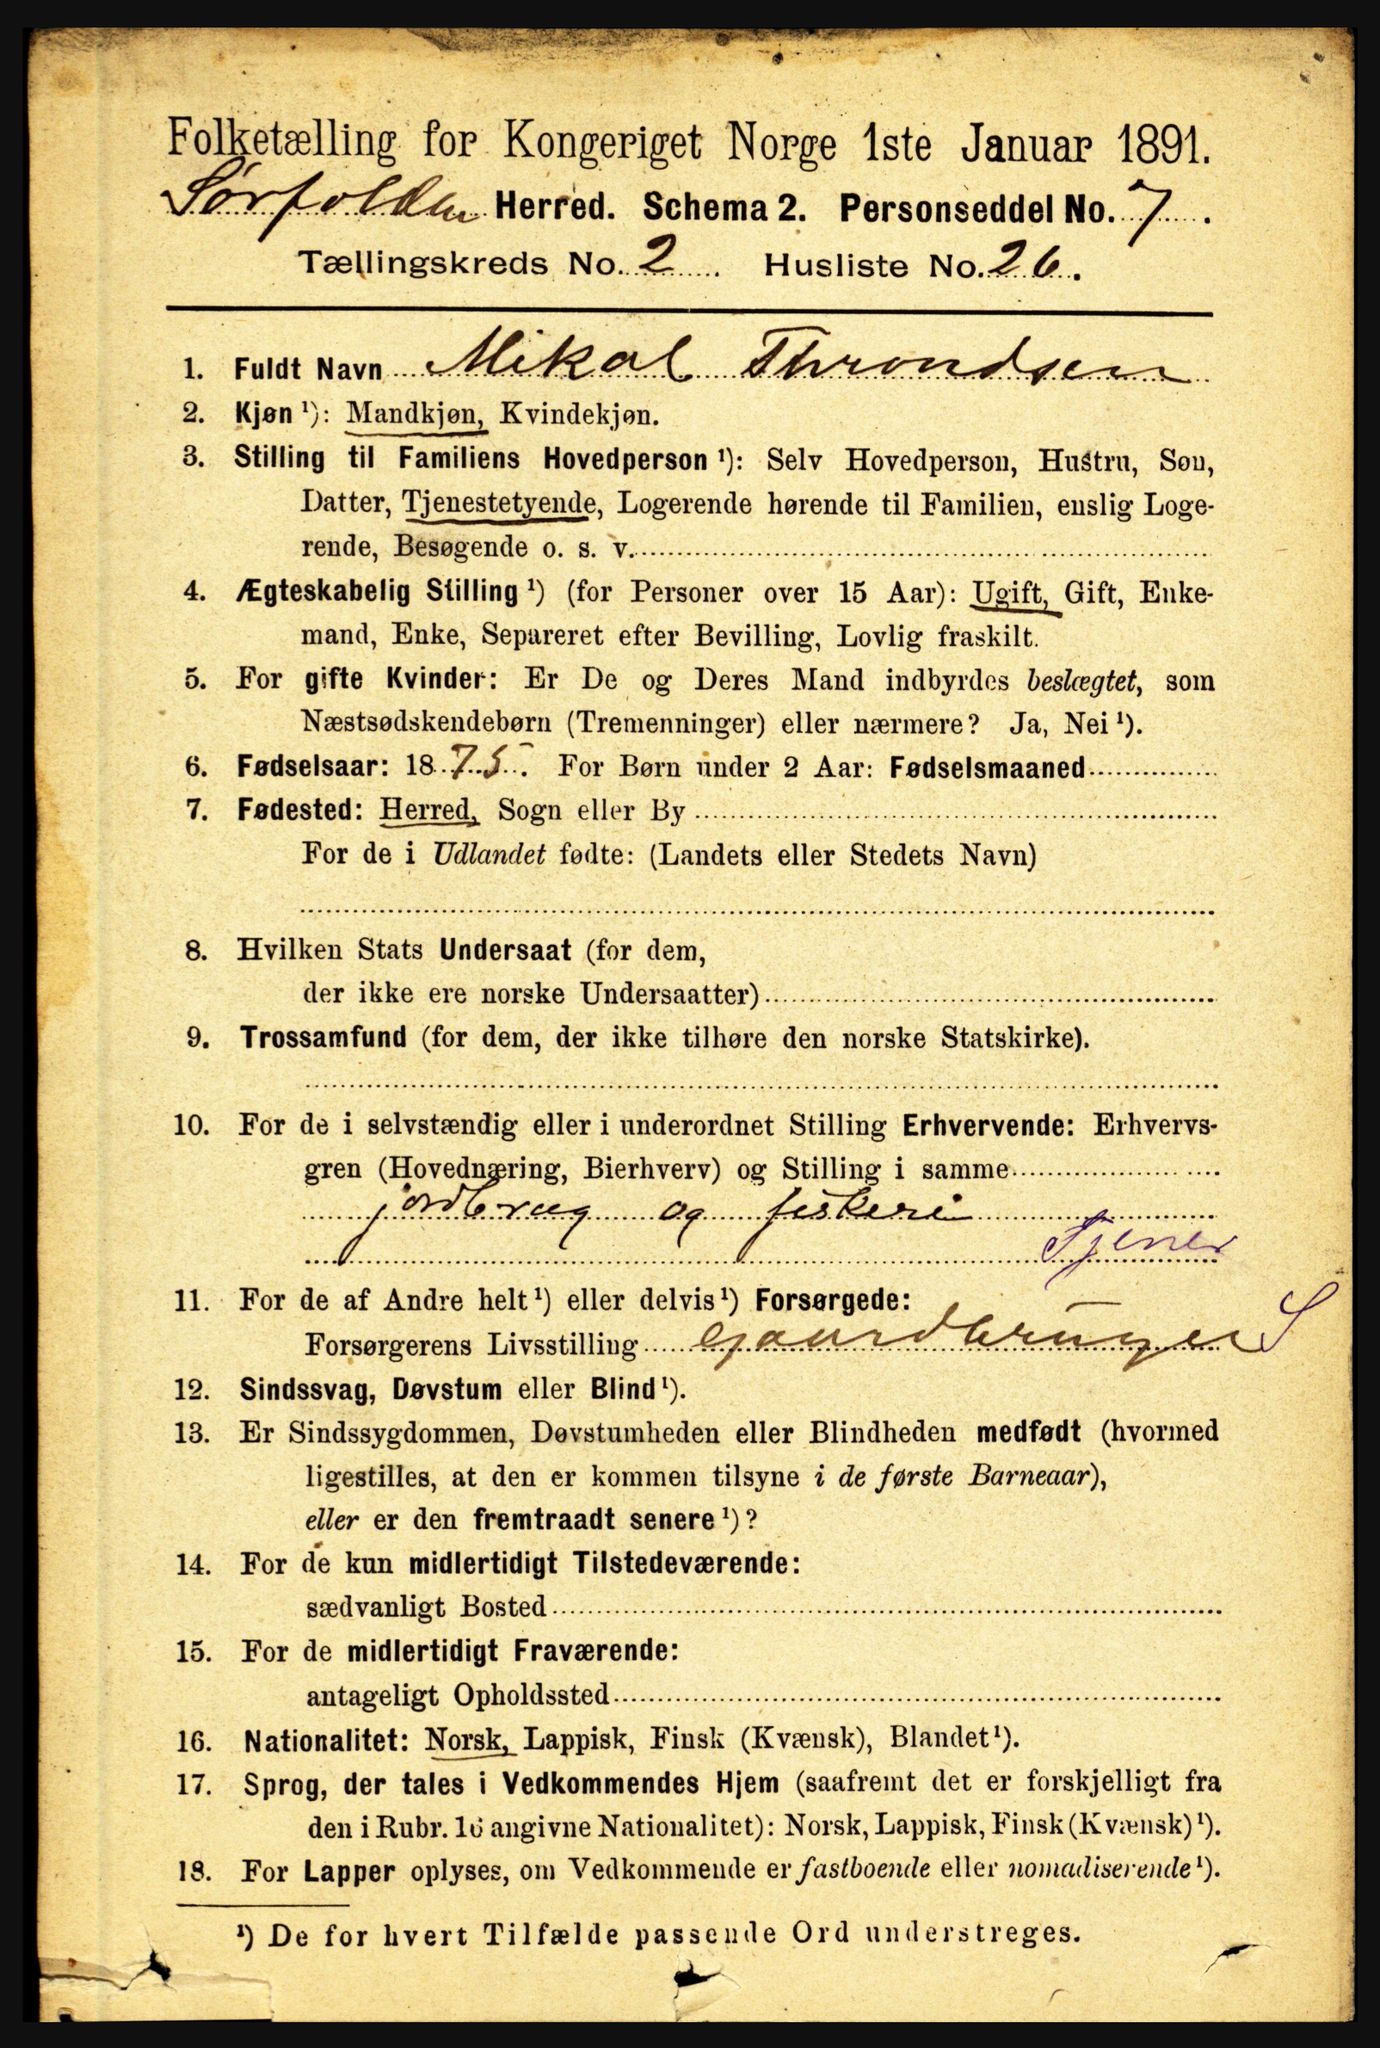 Folketælling for Kongeriget Norge 1ste Januar 1891.
Sørfolden Herred. Schema 2. Personseddel No. 7.
Tællingskreds No. 2. Husliste No. 26.
1. Fuldt Navn Mikal Throndsen
2. Kjøn ¹): Mandkjøn, Kvindekjøn.
3. Stilling til Familiens Hovedperson ¹): Selv Hovedperson, Hustru, Søn,
Datter, Tjenestetyende, Logerende hørende til Familien, enslig Loge-
rende, Besøgende o. s. v.
4. Ægteskabelig Stilling ¹) (for Personer over 15 Aar): Ugift, Gift, Enke-
mand, Enke, Separeret efter Bevilling, Lovlig fraskilt.
5. For gifte Kvinder: Er De og Deres Mand indbyrdes beslægtet, som
Næstsødskendebørn (Tremenninger) eller nærmere? Ja, Nei ¹).
6. Fødselsaar: 1875. For Børn under 2 Aar: Fødselsmaaned
7. Fødested: Herred, Sogn eller By
For de i Udlandet fødte: (Landets eller Stedets Navn)
8. Hvilken Stats Undersaat (for dem,
der ikke ere norske Undersaatter)
9. Trossamfund (for dem, der ikke tilhøre den norske Statskirke).
10. For de i selvstændig eller i underordnet Stilling Erhvervende: Erhvervs-
gren (Hovednæring, Bierhverv) og Stilling i samme
jordbrug og fiskeri
Tjener
11. For de af Andre helt ¹) eller delvis ¹) Forsørgede:
Forsørgerens Livsstilling Gaardbruger S
12. Sindssvag, Døvstum eller Blind ¹).
13. Er Sindssygdommen, Døvstumheden eller Blindheden medfødt (hvormed
ligestilles, at den er kommen tilsyne i de første Barneaar),
eller er den fremtraadt senere ¹)?
14. For de kun midlertidigt Tilstedeværende:
sædvanligt Bosted
15. For de midlertidigt Fraværende:
antageligt Opholdssted
16. Nationalitet: Norsk, Lappisk, Finsk (Kvænsk), Blandet ¹).
17. Sprog, der tales i Vedkommendes Hjem (saafremt det er forskjelligt fra
den i Rubr. 16 angivne Nationalitet): Norsk, Lappisk, Finsk (Kvænsk) ¹).
18. For Lapper oplyses, om Vedkommende er fastboende eller nomadiserende ¹).
¹) De for hvert Tilfælde passende Ord understreges.